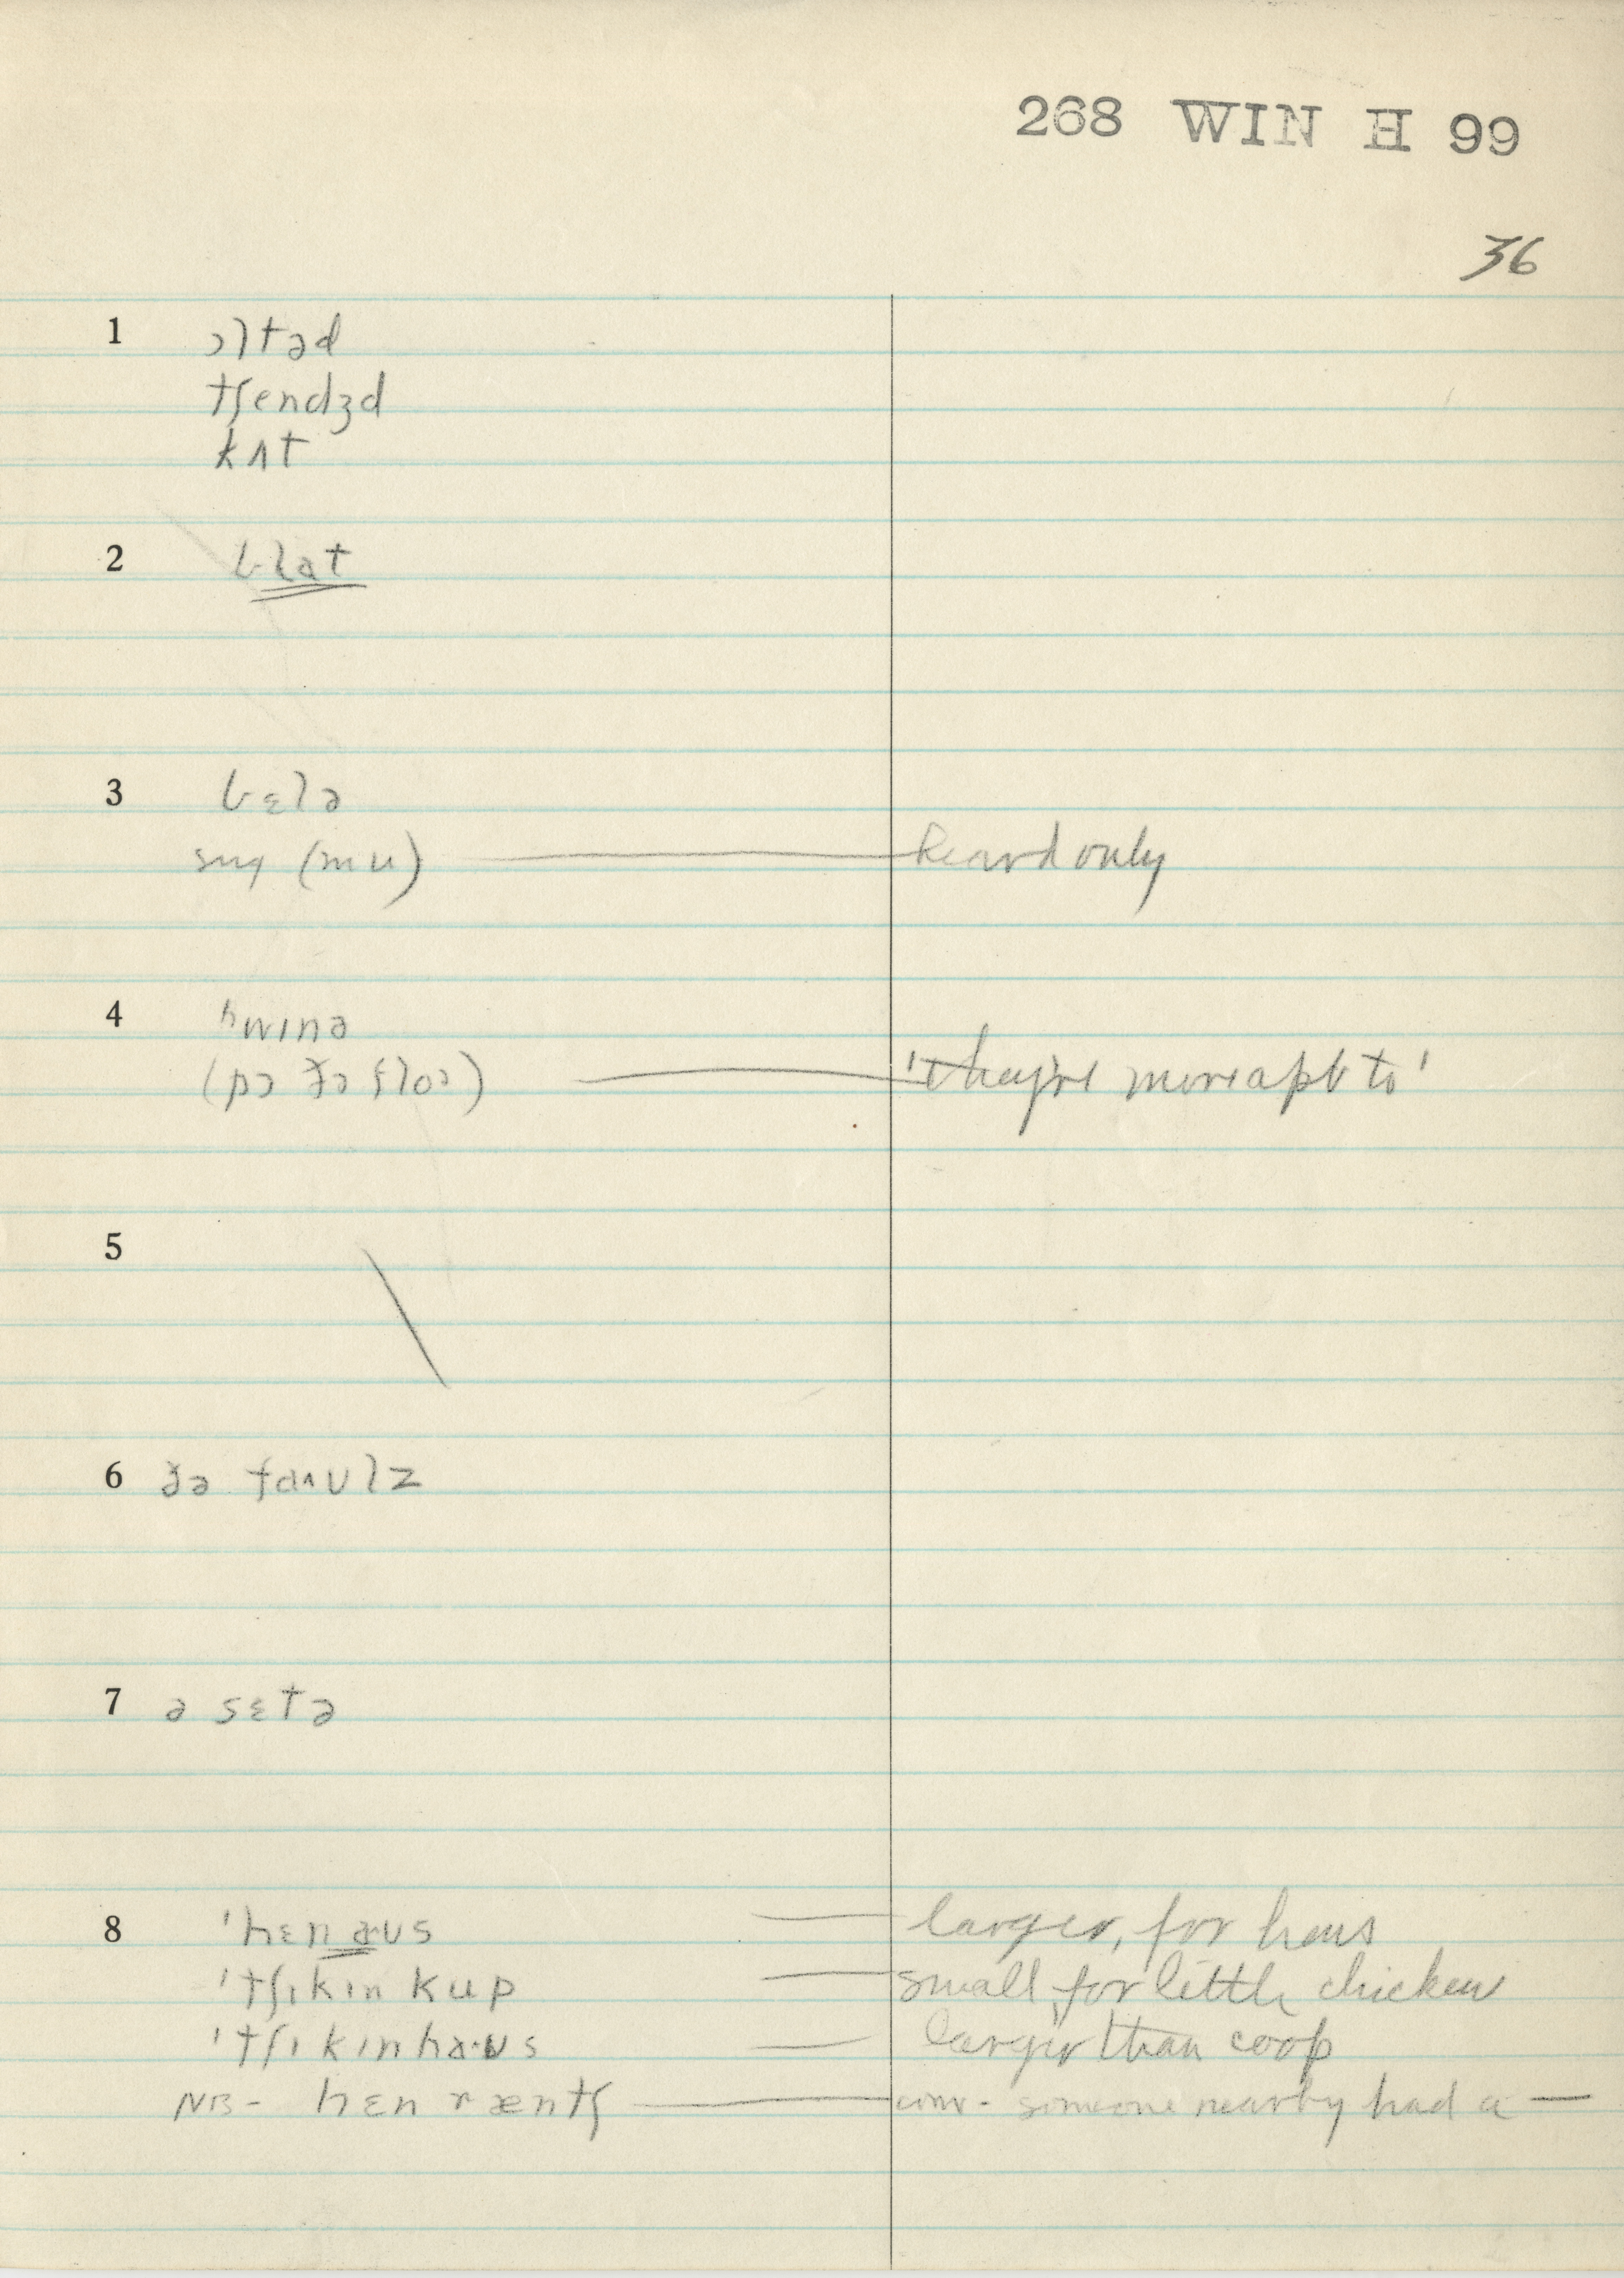 268 WIN H 99
36
1 ɔltəd
tʃendʒd
kʌt
2 blat
3 bɛlə
(mu) heard only
4 ʰwɪnə
'they're more apt to'
5
6 ðə faʌʊlz
7 ə sɛtə
8 'hɛnaʊs larger, for hens
'tʃɪkɪn kup small for little chicken
'tʃɪkɪnha·ʊs larger than coop
NB- hɛn ræntʃ conv. someone nearby had a —